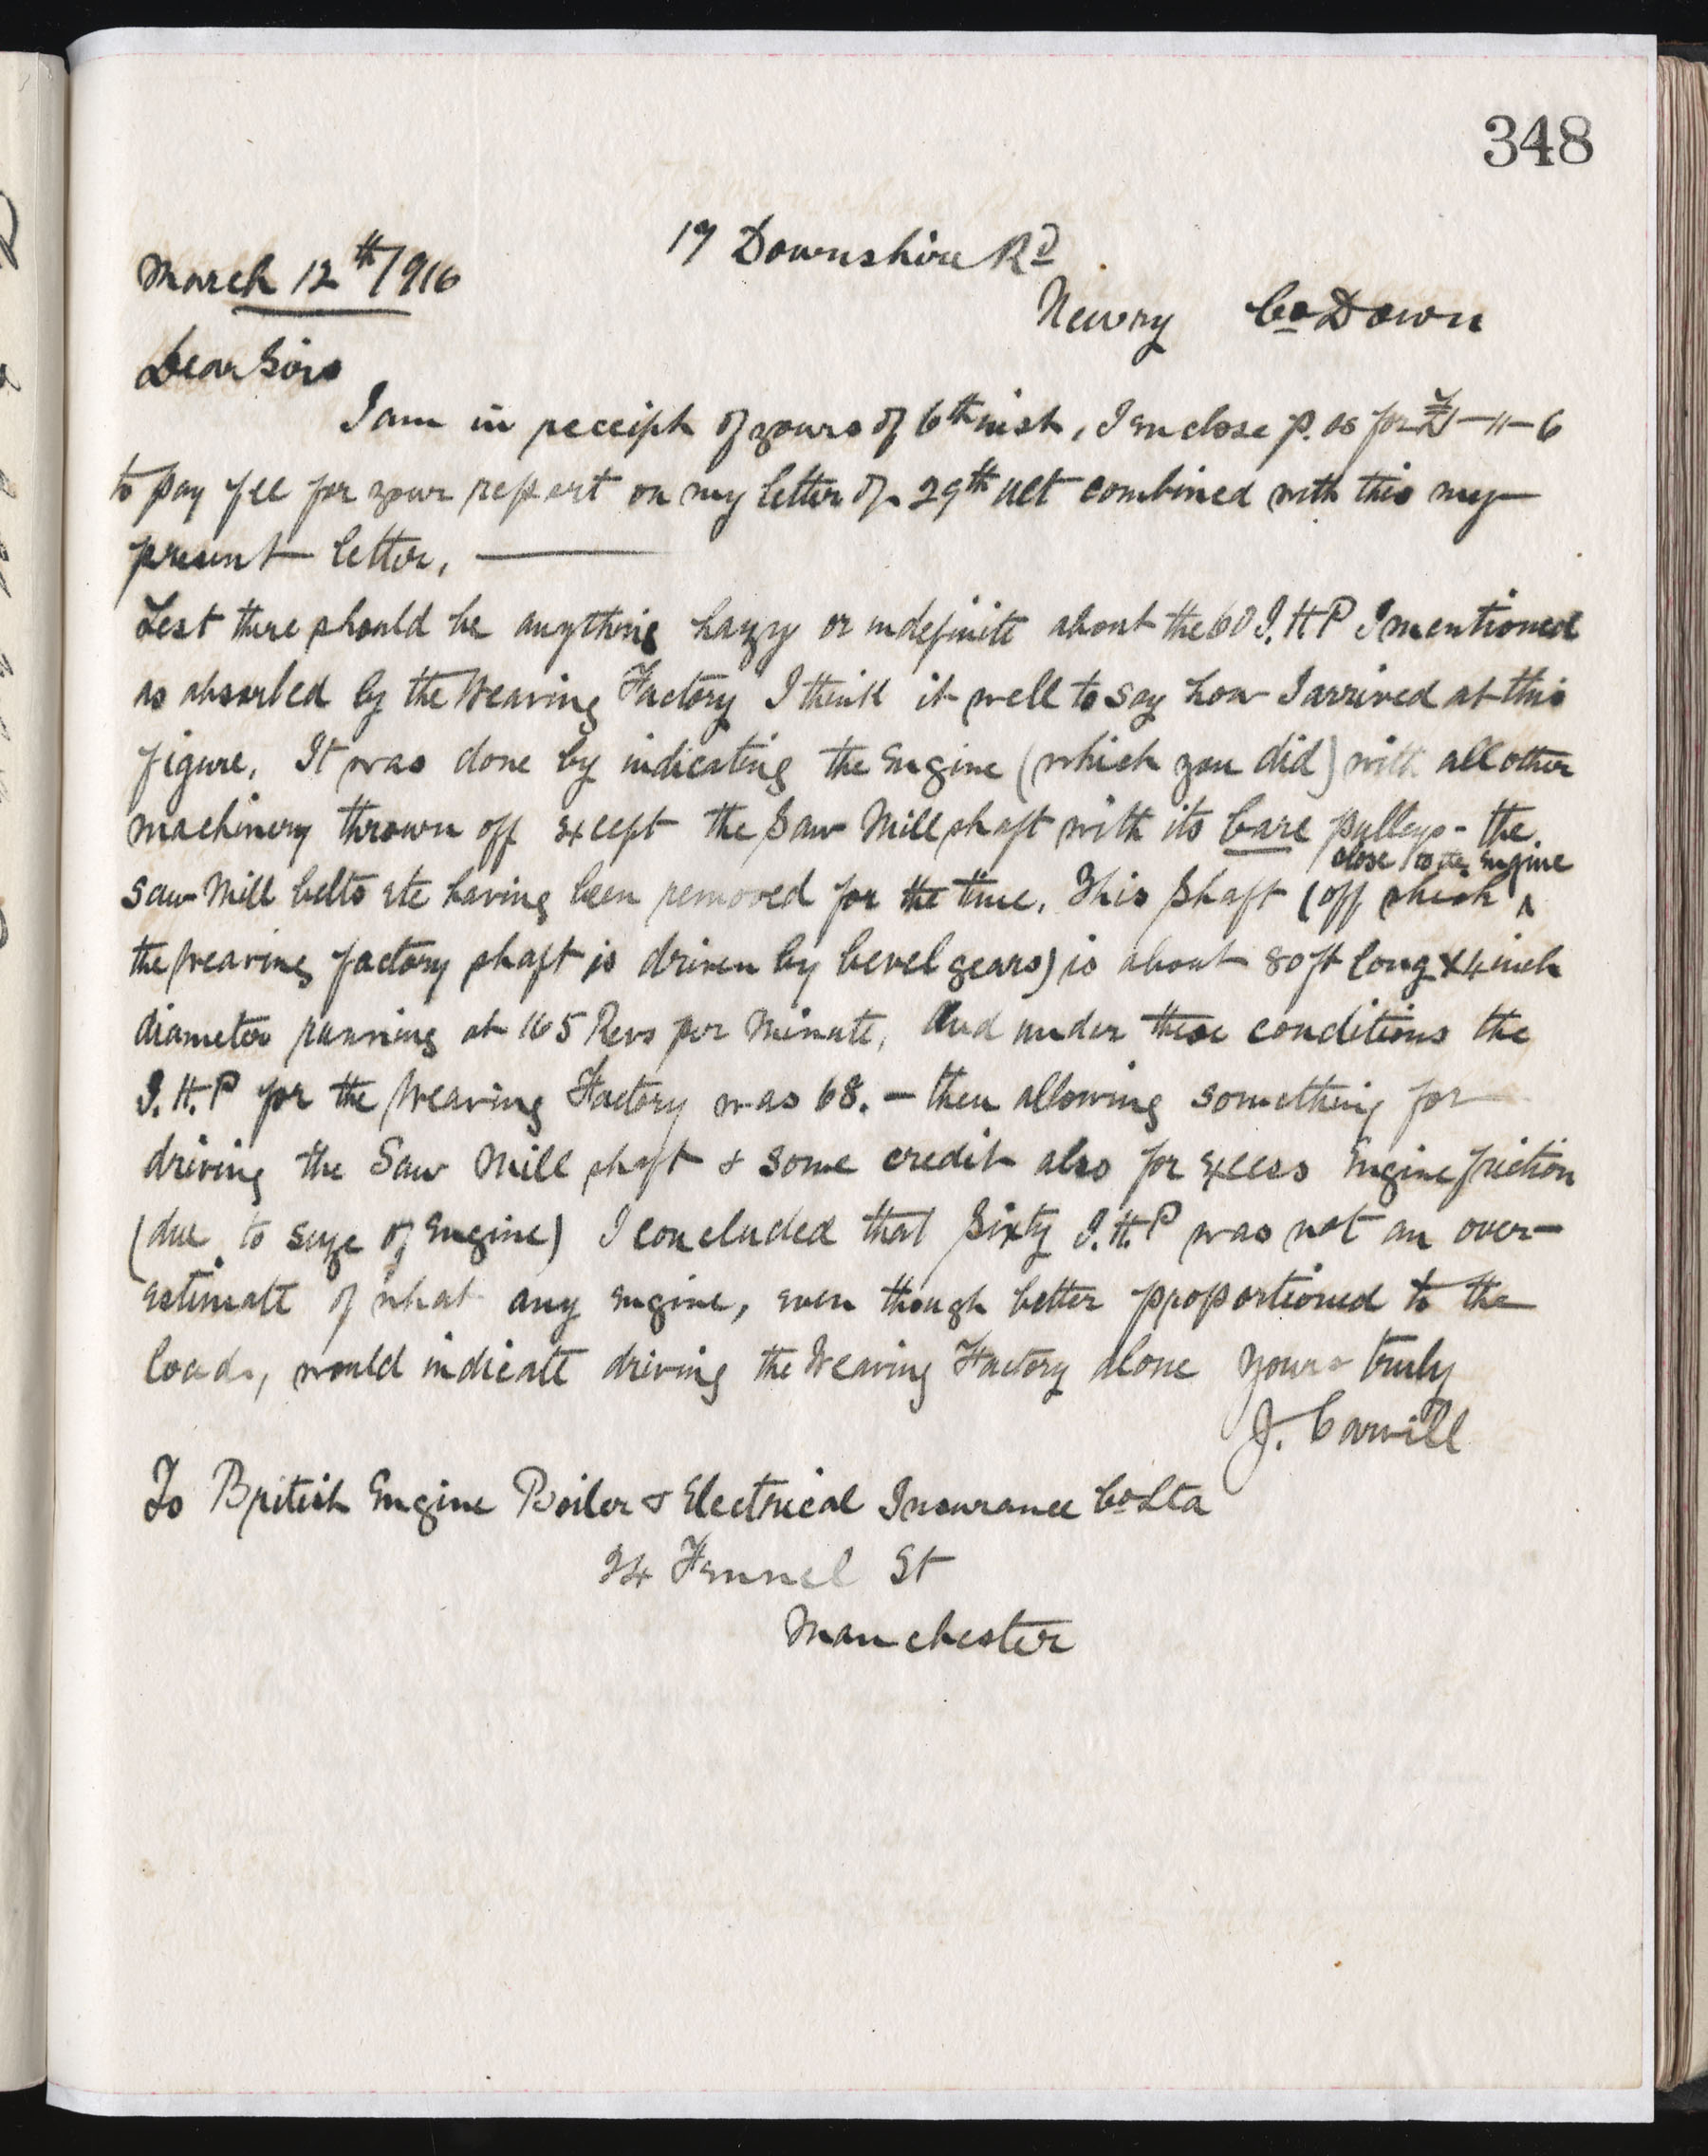 348
17 Downshire Rd
March 12th/916
Newry Co Down
Dear Sirs
I am in receipt of yours of 6th inst, I enclose p. os for £1-11-6
to pay fee for your report on my letter of 29th ult combined with this my
present letter, —
Lest there should be anything hazy or indefinite about the 60 I.H.P I mentioned
as absorbed by the Weaving Factory I think it well to say how I arrived at this
figure, It was done by indicating the Engine (which you did) with all other
machinery thrown off except the Saw Mill shaft with its bare pulleys - the
close to the Engine
Saw Mill belts etc having been removed for the time. This shaft (off which ^
the Weaving factory shaft is driven by bevel gears) is about 80 ft long x 4 inch
diameter running at 165 Revs per Minute, And under these conditions the
I.H.P for the Weaving Factory was 68. - then allowing something for
driving the Saw Mill shaft & some credit also for excess Engine friction
(due to size of Engine) I concluded that Sixty I.H.P was not an over-
estimate of what any engine, even though better proportioned to the
loads, would indicate driving the Weaving Factory alone Yours truly
J. Carvill
To British Engine Boiler & Electrical Insurance Co Ltd
24 Fennel St
Manchester